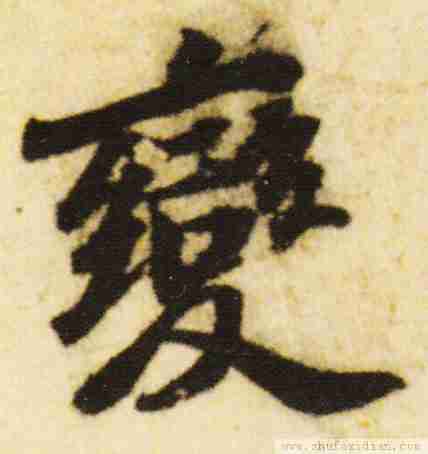 變
www.shufazidian.com